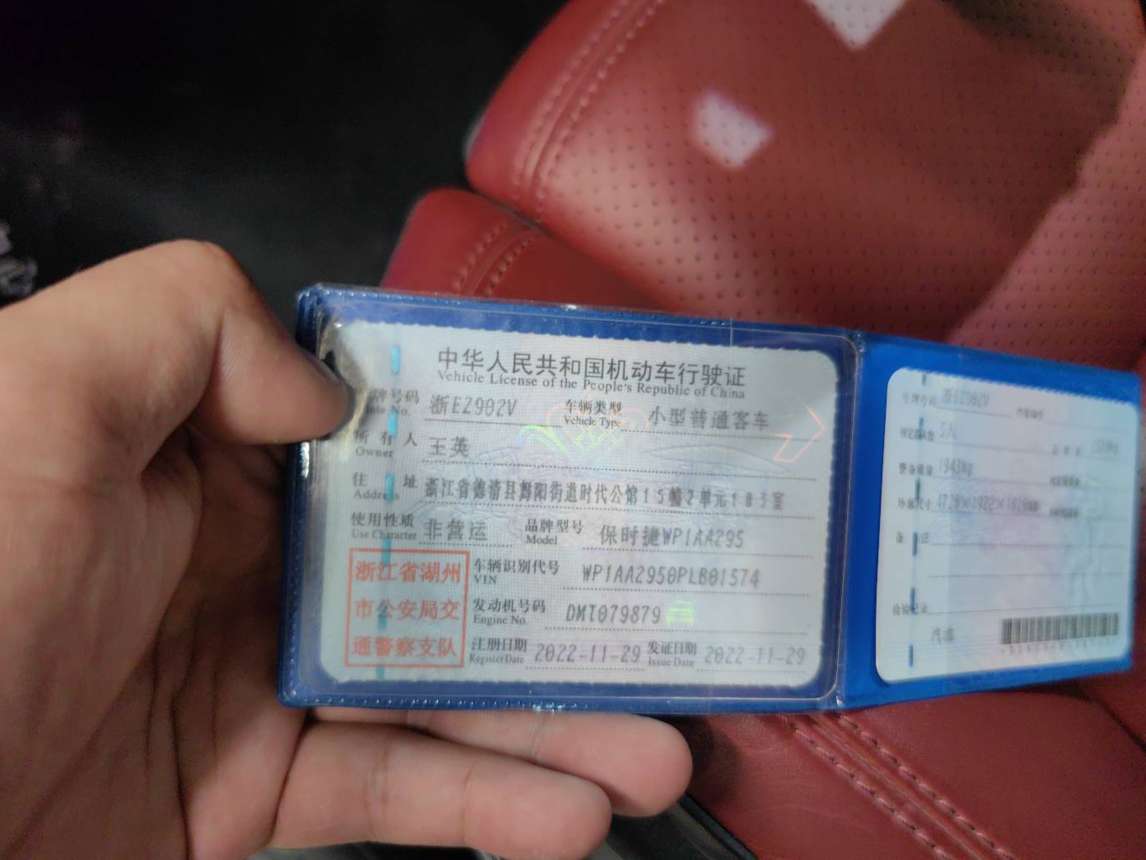 中华人民共和国机动车行驶证
Vehicle License of the People's Republic of China
牌号码 浙EZ902V 车辆类型 小型普通客车
Plate No. Vehicle Type
所有人 王英
Owner
住址 浙江省德清县舞阳街道时代公馆15幢2单元103室
Address
使用性质 非营运 品牌型号 保时捷WP1AA295
Use Character Model
浙江省湖州
市公安局交
通警察支队
车辆识别代号 WP1AA2950PLB01574
VIN
发动机号码 DMT079879
Engine No.
注册日期 2022-11-29 发证日期 2022-11-29
Register Date Issue Date
号牌号码 浙EZ902V
5人
整备质量 1943kg
外廓尺寸
备注
检验记录
汽油